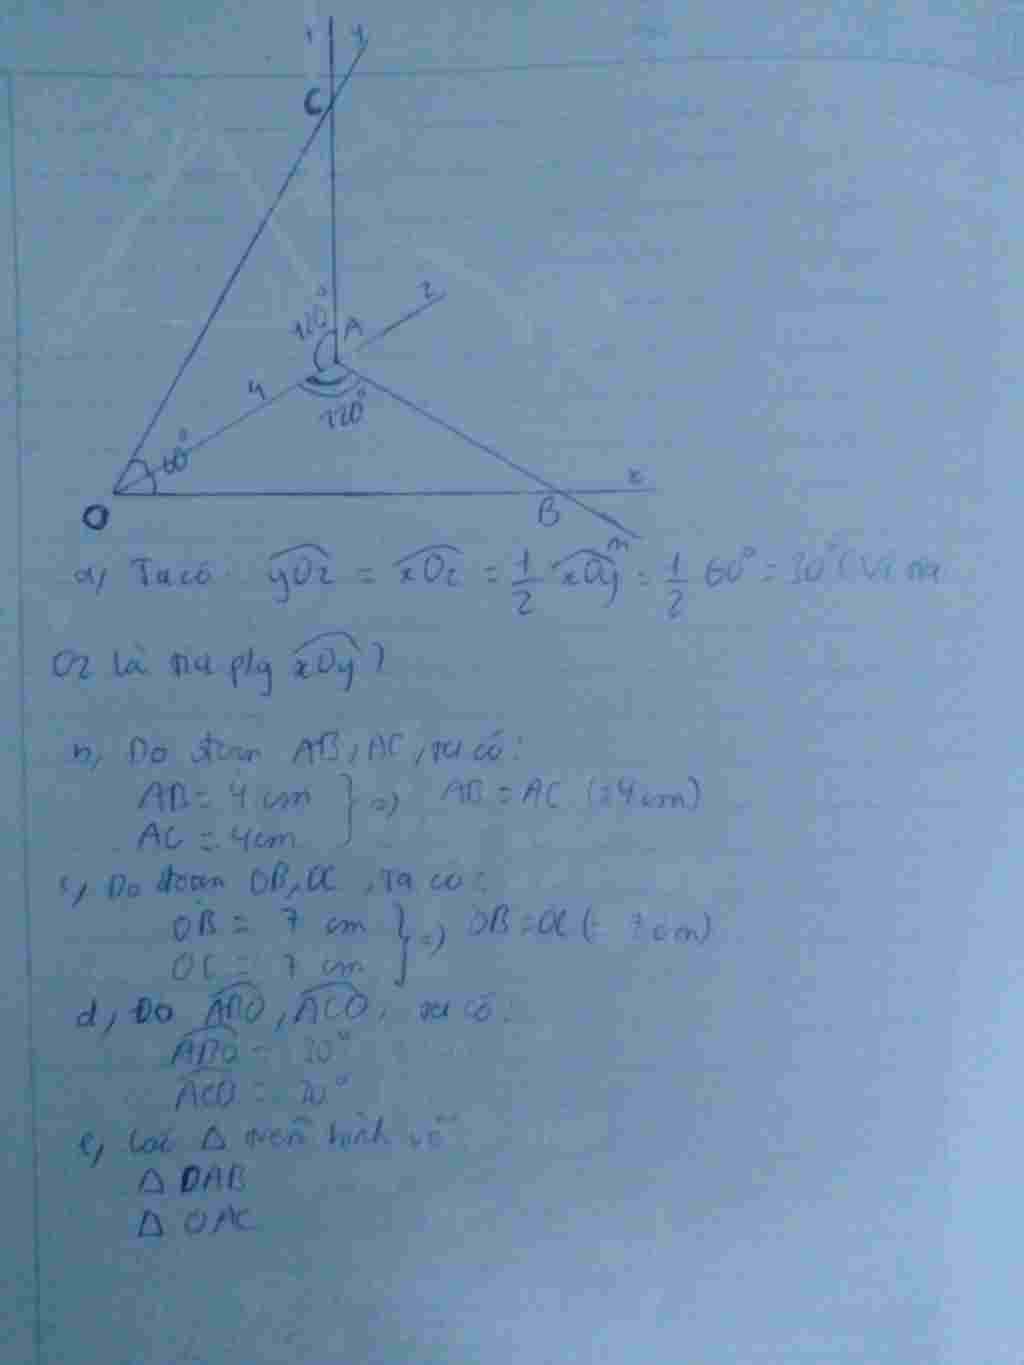 y
C
120°
A
z
4
120°
60°
x
O
B
m
a, Ta có yOz = xOz = 1/2 xOy = 1/2 60° = 30° (Vì tia
Oz là tia p/g xOy)
b, Đo đoạn AB, AC, ta có:
AB = 4 cm } => AB = AC (= 4 cm)
AC = 4cm
c, Đo đoạn OB, OC, ta có:
OB = 7 cm } => OB = OC (= 7 cm)
OC = 7 cm
d, Đo ABO, ACO, ta có:
ABO = 30°
ACO = 30°
e, Các Δ trên hình vẽ
Δ OAB
Δ OAC